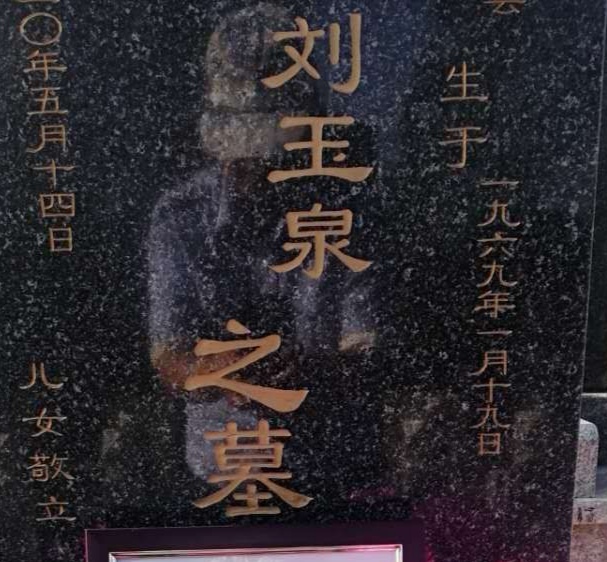 生于
一九六九年一月十九日
刘玉泉
之墓
〇年五月十四日
儿女敬立